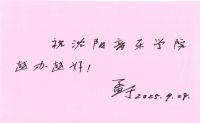 祝沈阳音乐学院
越办越好！
2025.9.28.